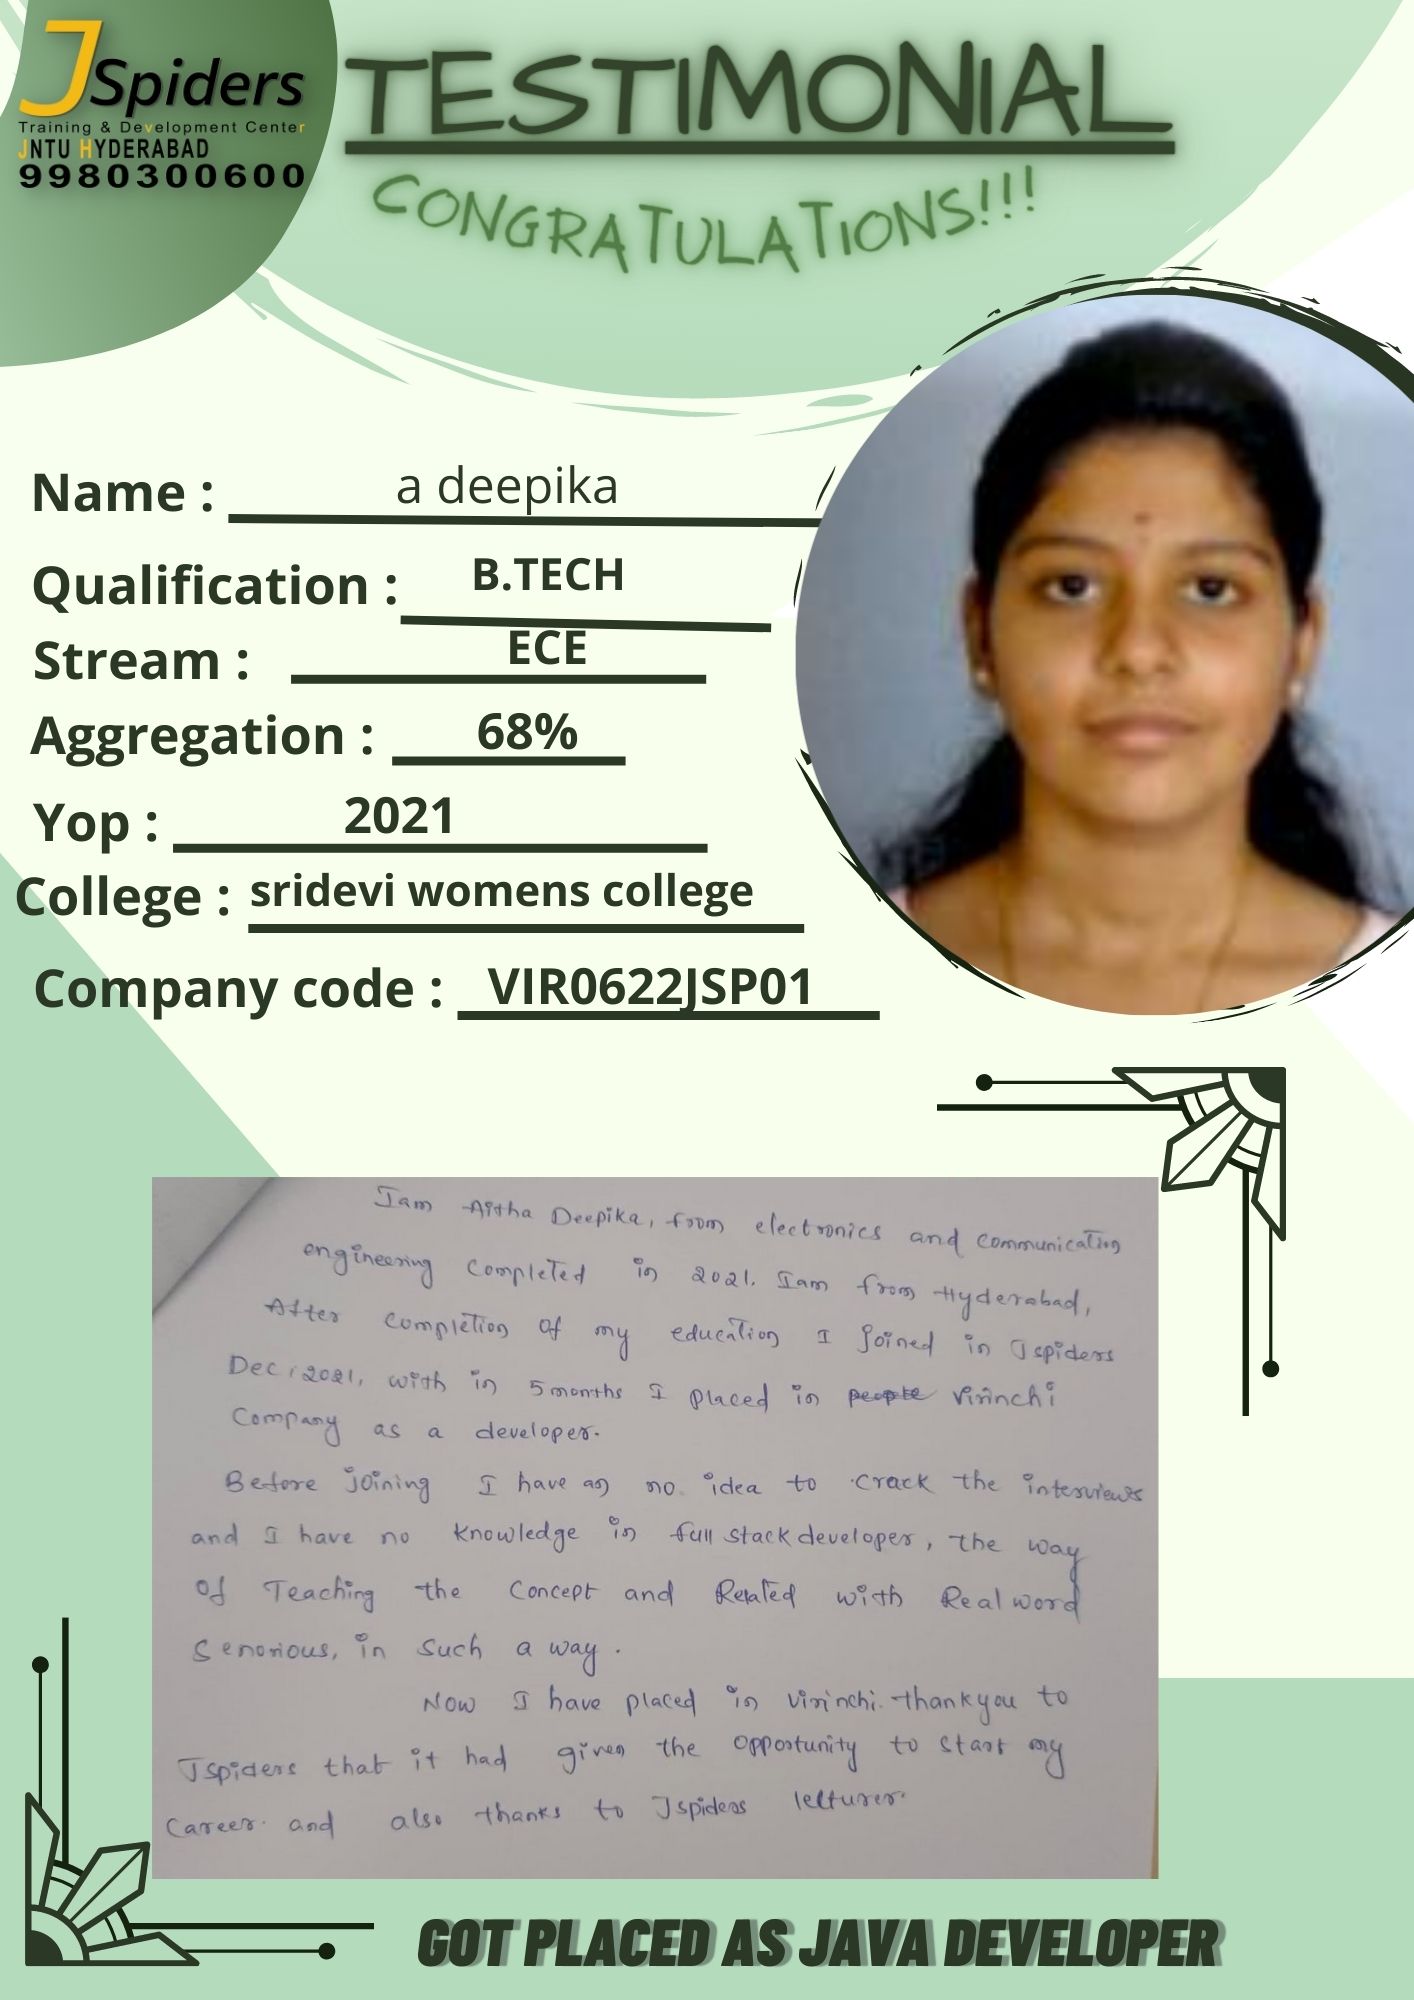 JSpiders
Training & Development Center
JNTU HYDERABAD
9980300600
TESTIMONIAL
CONGRATULATIONS!!!
Name : a deepika
Qualification : B.TECH
Stream : ECE
Aggregation : 68%
Yop : 2021
College : sridevi womens college
Company code : VIR0622JSP01
Iam Aitha Deepika, from electronics and communication
engineering completed in 2021. Iam from Hyderabad,
After completion of my education I joined in Jspiders
Dec, 2021, with in 5 months I placed in people Virinchi
Company as a developer.
Before joining I have an no idea to crack the interviews
and I have no knowledge in full stack developer, the way
of Teaching the Concept and Related with Real word
Senorious, in such a way.
Now I have placed in virinchi. thankyou to
Jspiders that it had given the opportunity to start my
Career. and also thanks to Jspiders letturer.
GOT PLACED AS JAVA DEVELOPER